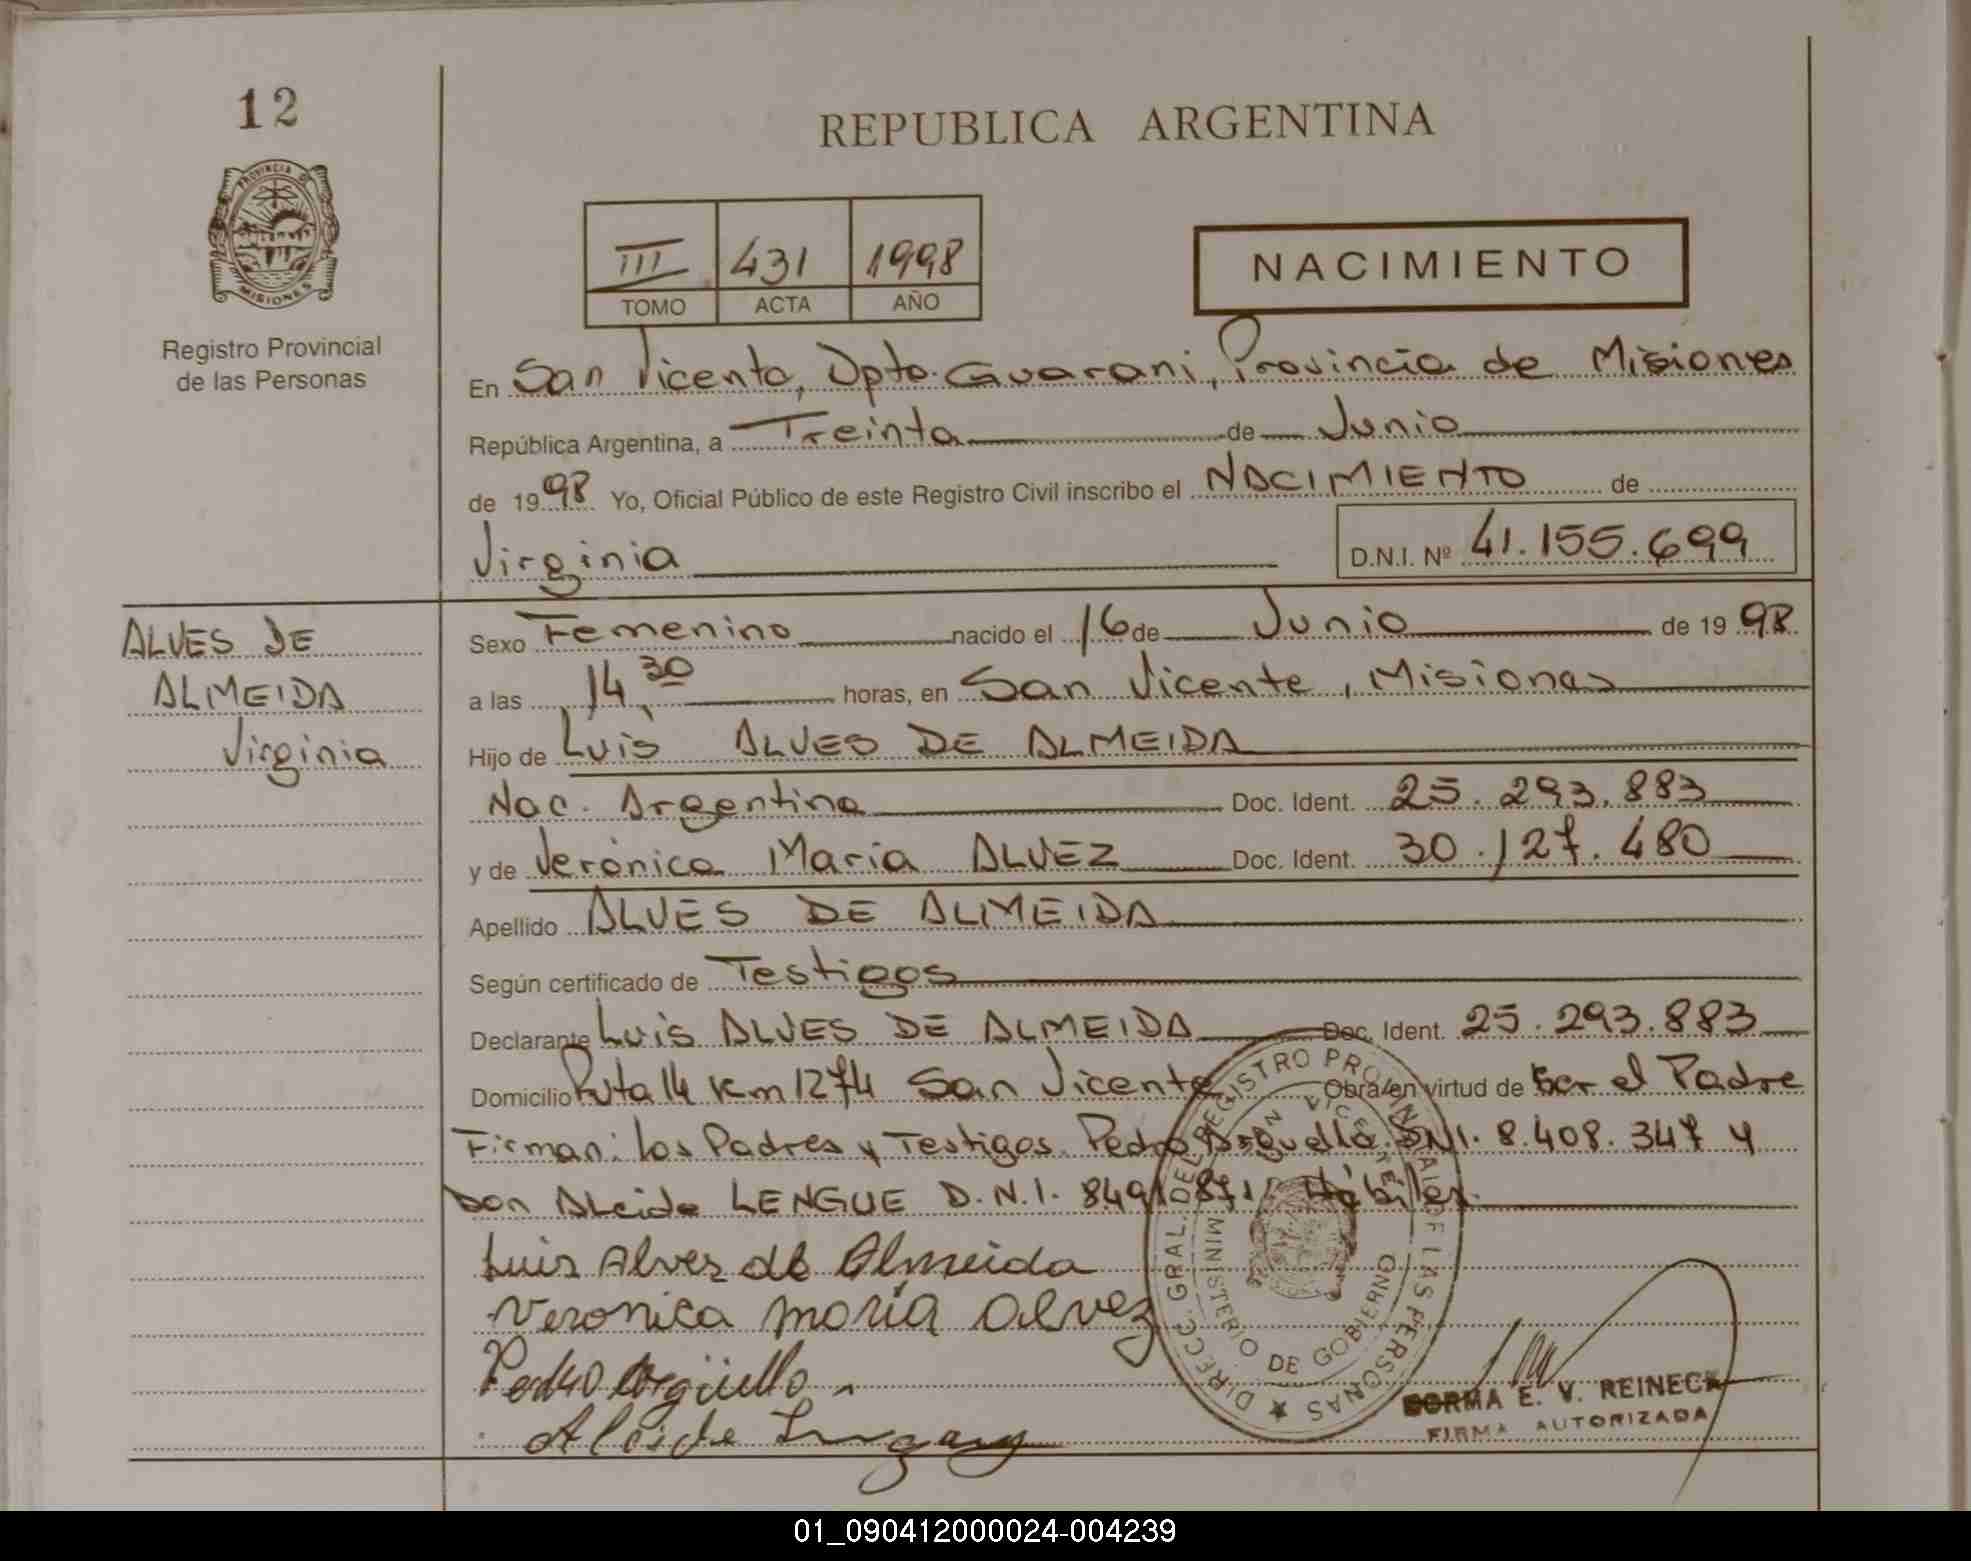 12
REPUBLICA ARGENTINA
PROVINCIA DE
MISIONES
Registro Provincial
de las Personas
III 431 1998
TOMO ACTA AÑO
NACIMIENTO
En San Vicente, Dpto. Guarani, Provincia de Misiones
República Argentina, a Treinta de Junio
de 1998 Yo, Oficial Público de este Registro Civil inscribo el NACIMIENTO de
Virginia D.N.I. Nº 41.155.699
ALVES DE
ALMEIDA
Virginia
Sexo Femenino nacido el 16 de Junio de 1998
a las 14,30 horas, en San Vicente, Misiones
Hijo de Luis ALVES DE ALMEIDA
Nac. Argentina Doc. Ident. 25.293.883
y de Verónica María ALVEZ Doc. Ident. 30.127.480
Apellido ALVES DE ALMEIDA
Según certificado de Testigos
Declarante Luis ALVES DE ALMEIDA Doc. Ident. 25.293.883
Domicilio Ruta 14 Km 1274 San Vicente Obra en virtud de ser el Padre
Firman: los Padres y Testigos. Pedro Arguello. DNI. 8.408.347 y
Don Alcide LENGUE D.N.I. Hábiles.
Luis Alves de Almeida
Veronica maría alvez
Pedro Argüello
Alcide
DIRECC. GRAL. DEL REGISTRO PROVINCIAL DE LAS PERSONAS
SAN VICENTE
MINISTERIO DE GOBIERNO
E. V. REINECK
FIRMA AUTORIZADA
01_090412000024-004239